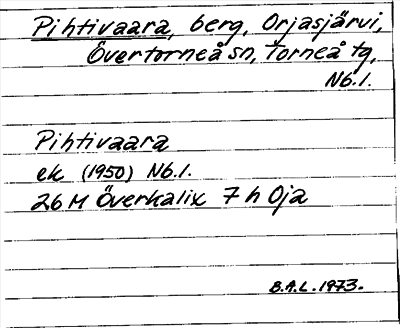 Pihtivaara, berg, Orjasjärvi,
Övertorneå sn, Torneå tg,
Nb.l.
Pihtivaara
ek (1950) Nb.l.
26 M Överkalix 7 h Oja
B.A.L. 1973.